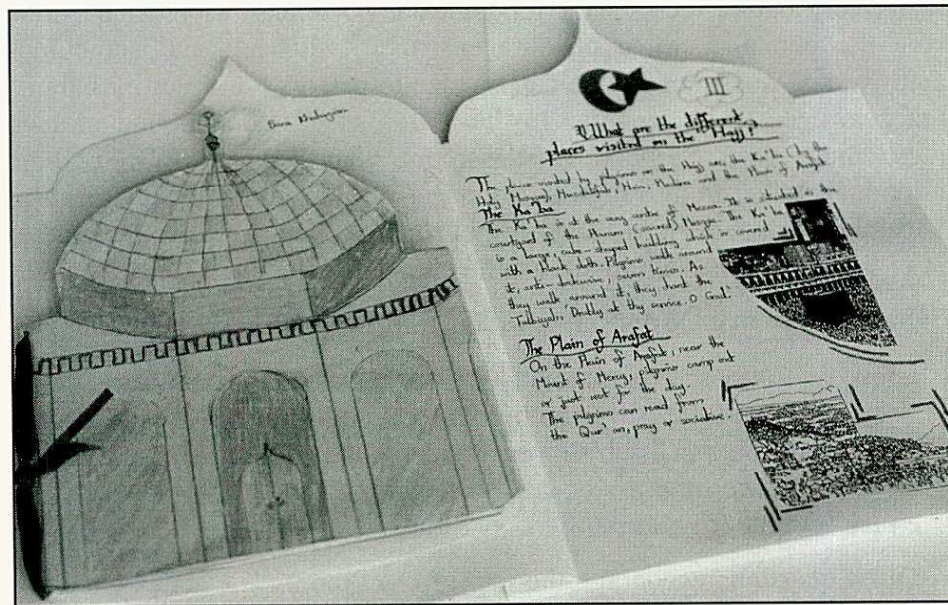 Sara
III
What are the different
places visited on the "Hajj?"
The places visited by pilgrims on the Hajj are; the Ka'ba (by the
Holy Mosque), Muzdalifah, Mina, Medina and the Plain of Arafat.
The Ka'ba
The Ka'ba is at the very centre of Mecca. It is situated in the
courtyard of the Haram (sacred) Mosque. The Ka'ba
is a large, cube-shaped building which is covered
with a black cloth. Pilgrims walk around
it, anti-clockwise, seven times. As
they walk around it, they chant the
Talbiyah: at thy service, O God.'
The Plain of Arafat
On the Plain of Arafat, near the
Mount of Mercy, pilgrims camp out
or just rest for the day.
The pilgrims can read from
the Qur'an, pray or socialise.